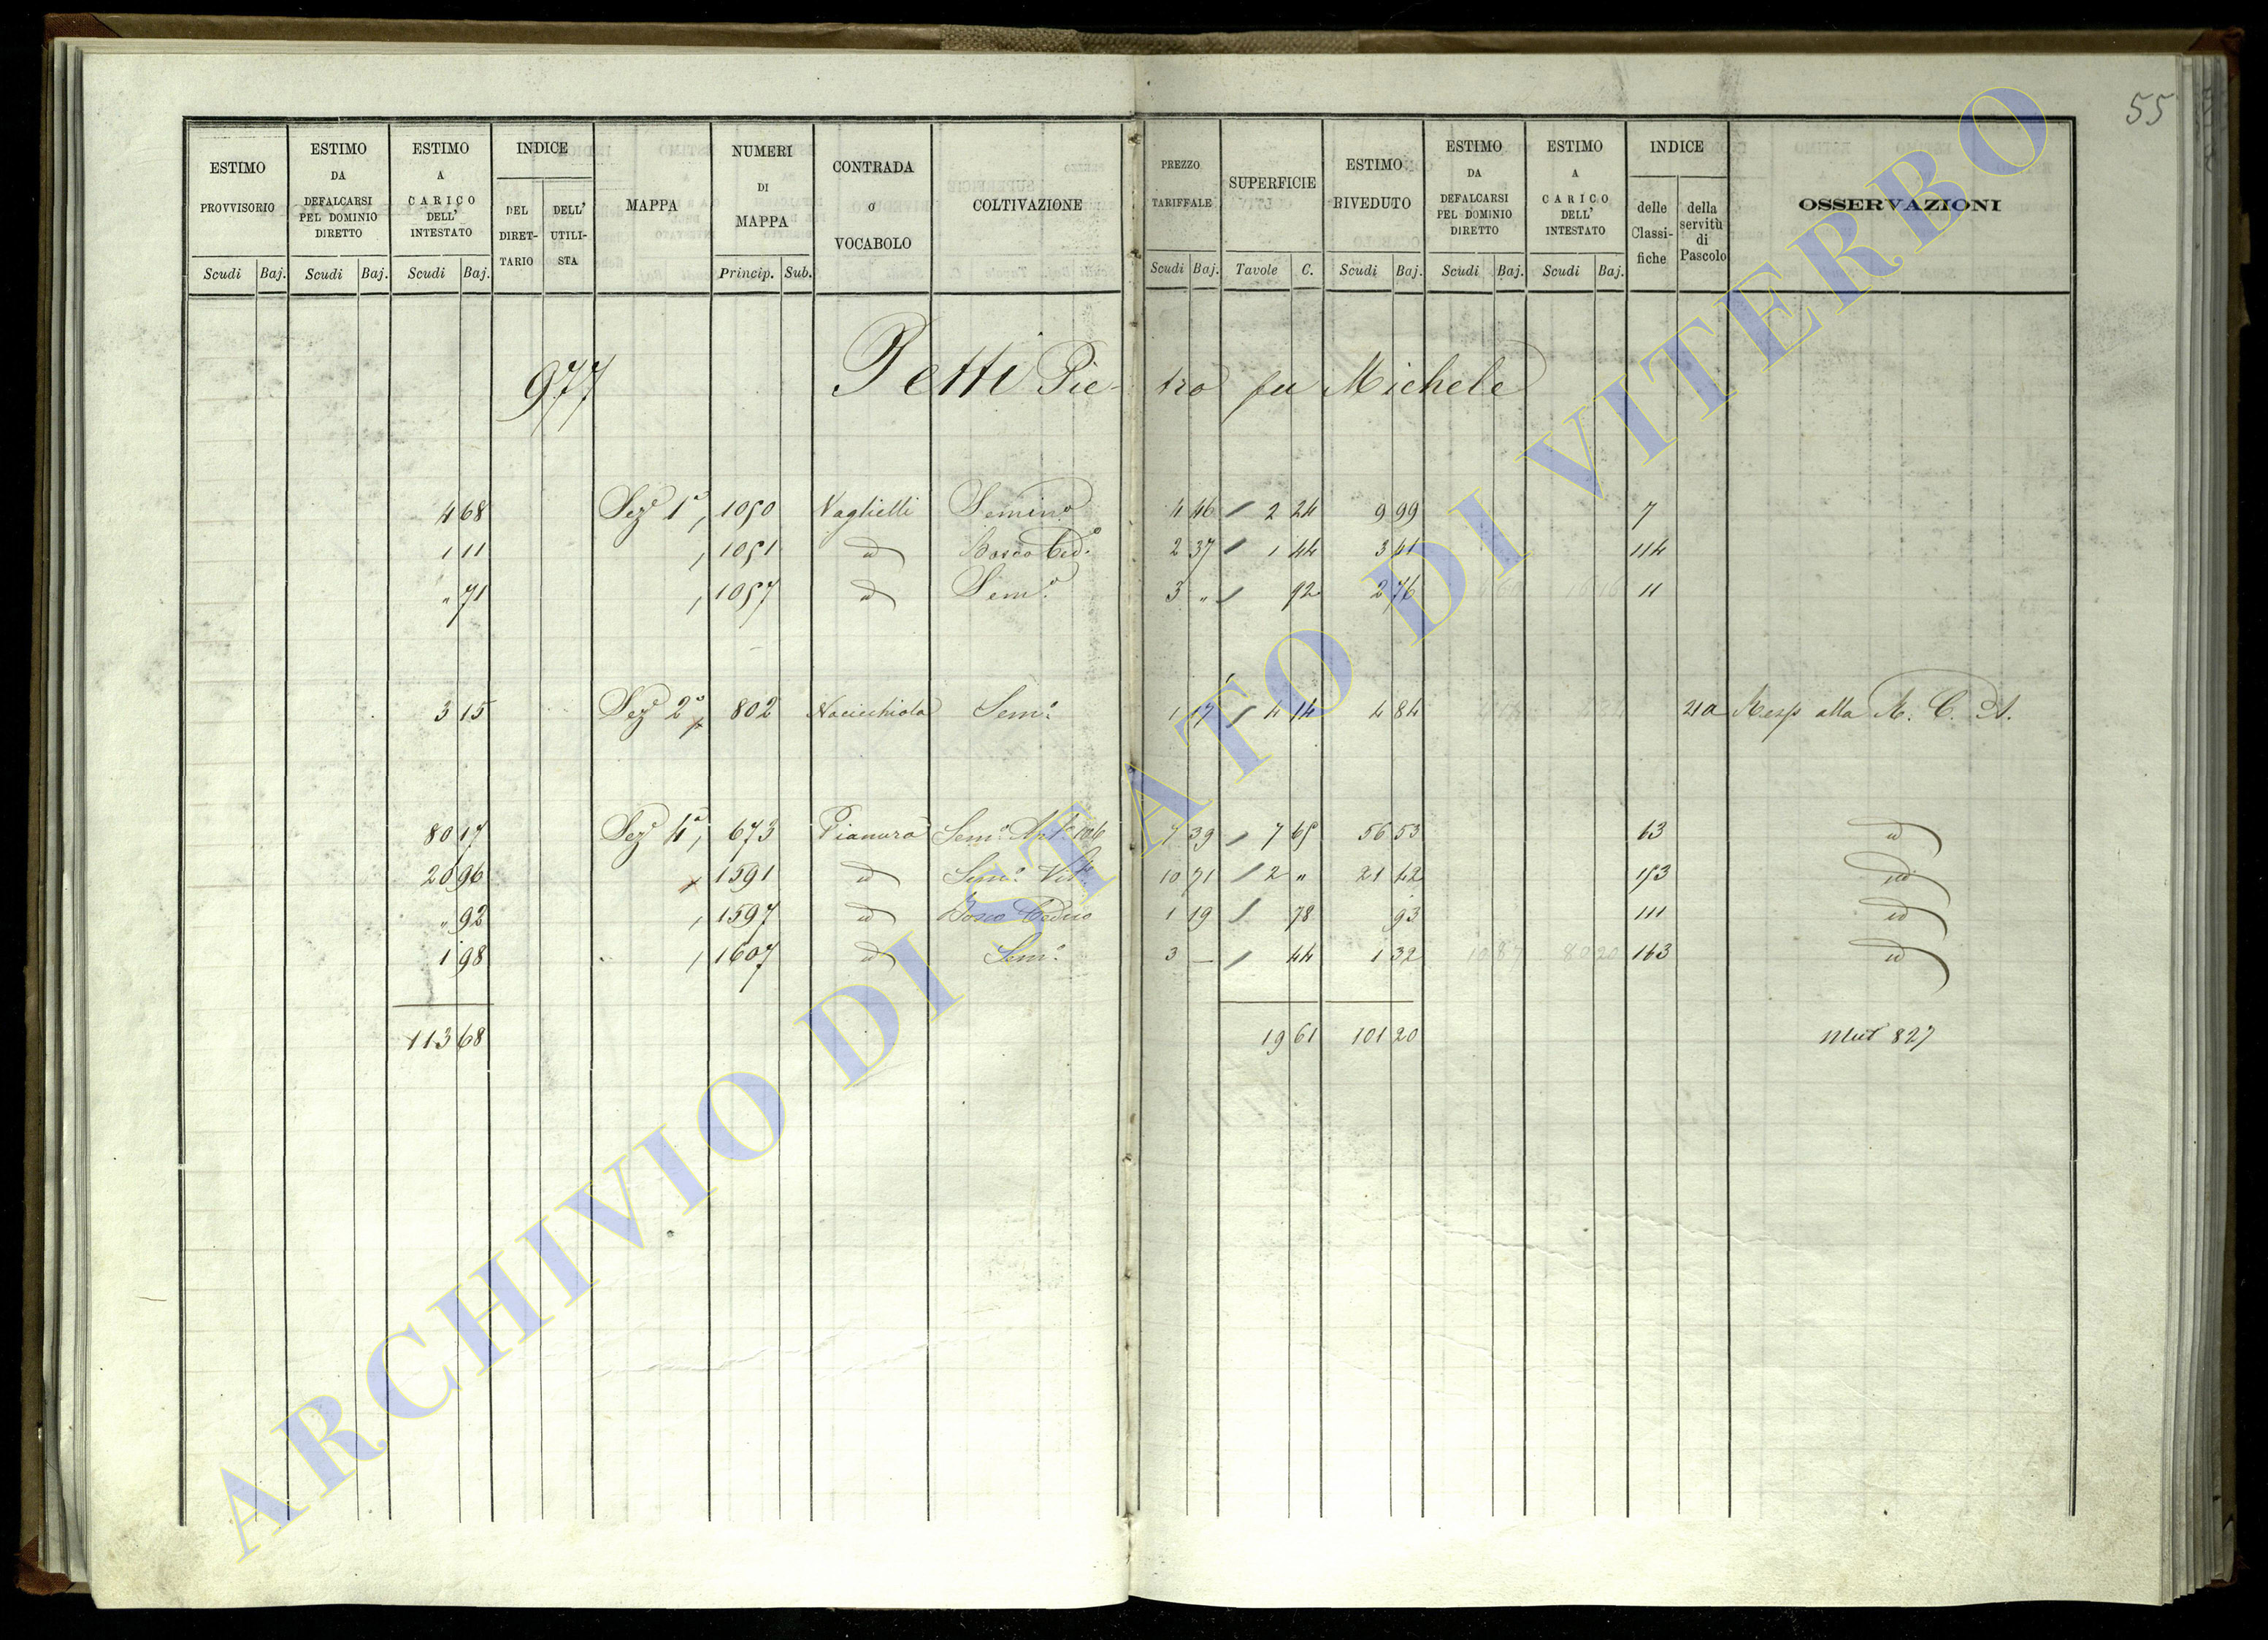 55
ESTIMO PROVVISORIO
ESTIMO DA DEFALCARSI PEL DOMINIO DIRETTO
ESTIMO A CARICO DELL' INTESTATO
INDICE
DEL DIRET-TARIO
DELL' UTILI-STA
MAPPA
NUMERI DI MAPPA
CONTRADA o VOCABOLO
COLTIVAZIONE
PREZZO TARIFFALE
SUPERFICIE
ESTIMO RIVEDUTO
ESTIMO DA DEFALCARSI PEL DOMINIO DIRETTO
ESTIMO A CARICO DELL' INTESTATO
INDICE
delle Classi-fiche
della servitù di Pascolo
OSSERVAZIONI
Scudi Baj. Scudi Baj. Scudi Baj. Princip. Sub. Scudi Baj. Tavole C. Scudi Baj. Scudi Baj. Scudi Baj.
977 Petti Pie- tro fu Michele
4 68 Sez.e 1a 1050 Vaglielli Semin.o 4 46 2 24 9 99 7
1 11 1051 id Bosco Ced.o 2 37 1 44 3 41 114
" 71 1057 id Sem.o 3 " 92 2 76 11
3 15 Sez.e 2a 802 Sem.o 1 17 4 14 4 84 21a Resp alla R. C. A.
80 17 Sez.e 4a 673 Pianura Sem.o 7 39 7 65 56 53 63 id
20 96 1591 id Sem.o Vit.o 10 71 2 " 21 42 153 id
" 92 1597 id Bosco Ceduo 1 19 78 93 111 id
1 98 1607 id Sem.o 3 — 44 1 32 163 id
113 68 19 61 101 20 Mut 827
ARCHIVIO DI STATO DI VITERBO